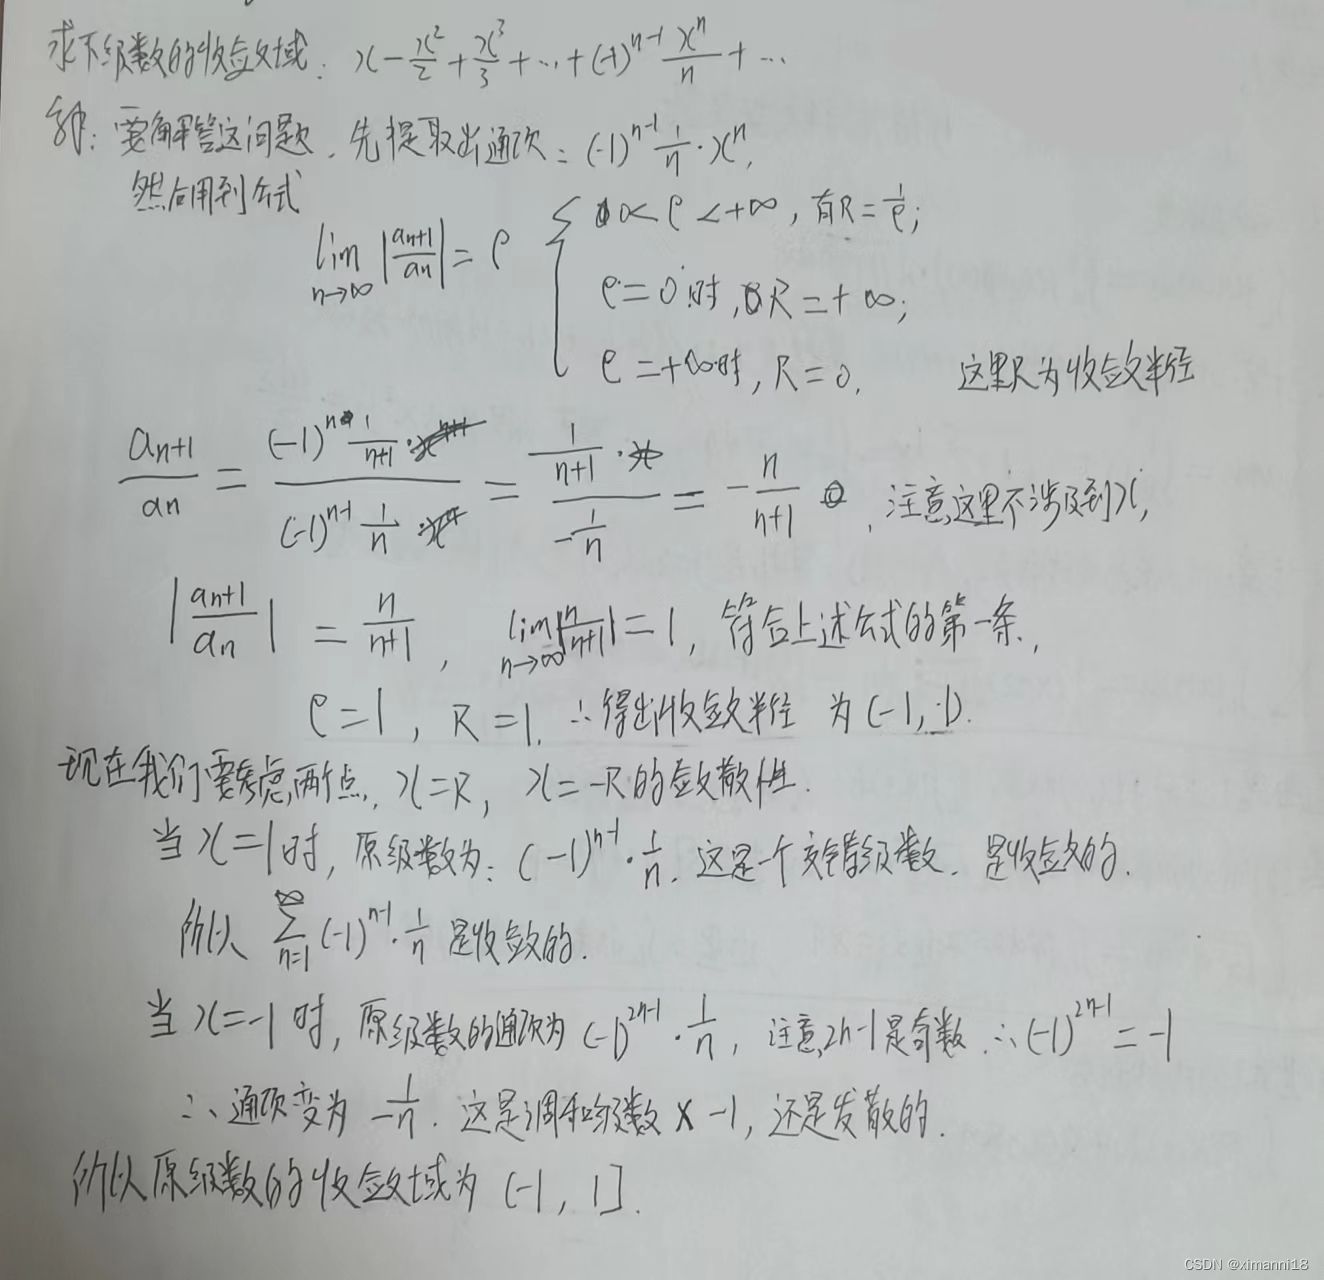 求下级数的收敛域：x - x²/2 + x³/3 + … + (-1)^{n-1} xⁿ/n + …
解：要解答这问题，先提取出通项：(-1)^{n-1} 1/n · xⁿ，
然后用到公式
lim_{n→∞} |a_{n+1}/a_n| = ρ { 0 < ρ < +∞，有R = 1/ρ；
ρ = 0时，R = +∞；
ρ = +∞时，R = 0． 这里R为收敛半径
a_{n+1}/a_n = ((-1)^n 1/(n+1)) / ((-1)^{n-1} 1/n) = (1/(n+1)) / (-1/n) = - n/(n+1)，注意这里不涉及到x，
|a_{n+1}/a_n| = n/(n+1)， lim_{n→∞} |n/(n+1)| = 1，符合上述公式的第一条，
ρ = 1，R = 1．∴得出收敛半径 为(-1, 1)．
现在我们要考虑两个点，x = R，x = -R的敛散性．
当x = 1时，原级数为：(-1)^{n-1} · 1/n．这是一个交错级数．是收敛的．
所以 ∑_{n=1}^{∞} (-1)^{n-1} · 1/n 是收敛的．
当x = -1时，原级数的通项为(-1)^{2n-1} · 1/n，注意，2n-1是奇数．∴(-1)^{2n-1} = -1
∴通项变为 -1/n．这是调和级数 × -1，还是发散的．
所以原级数的收敛域为 (-1, 1]．
CSDN @ximanni18